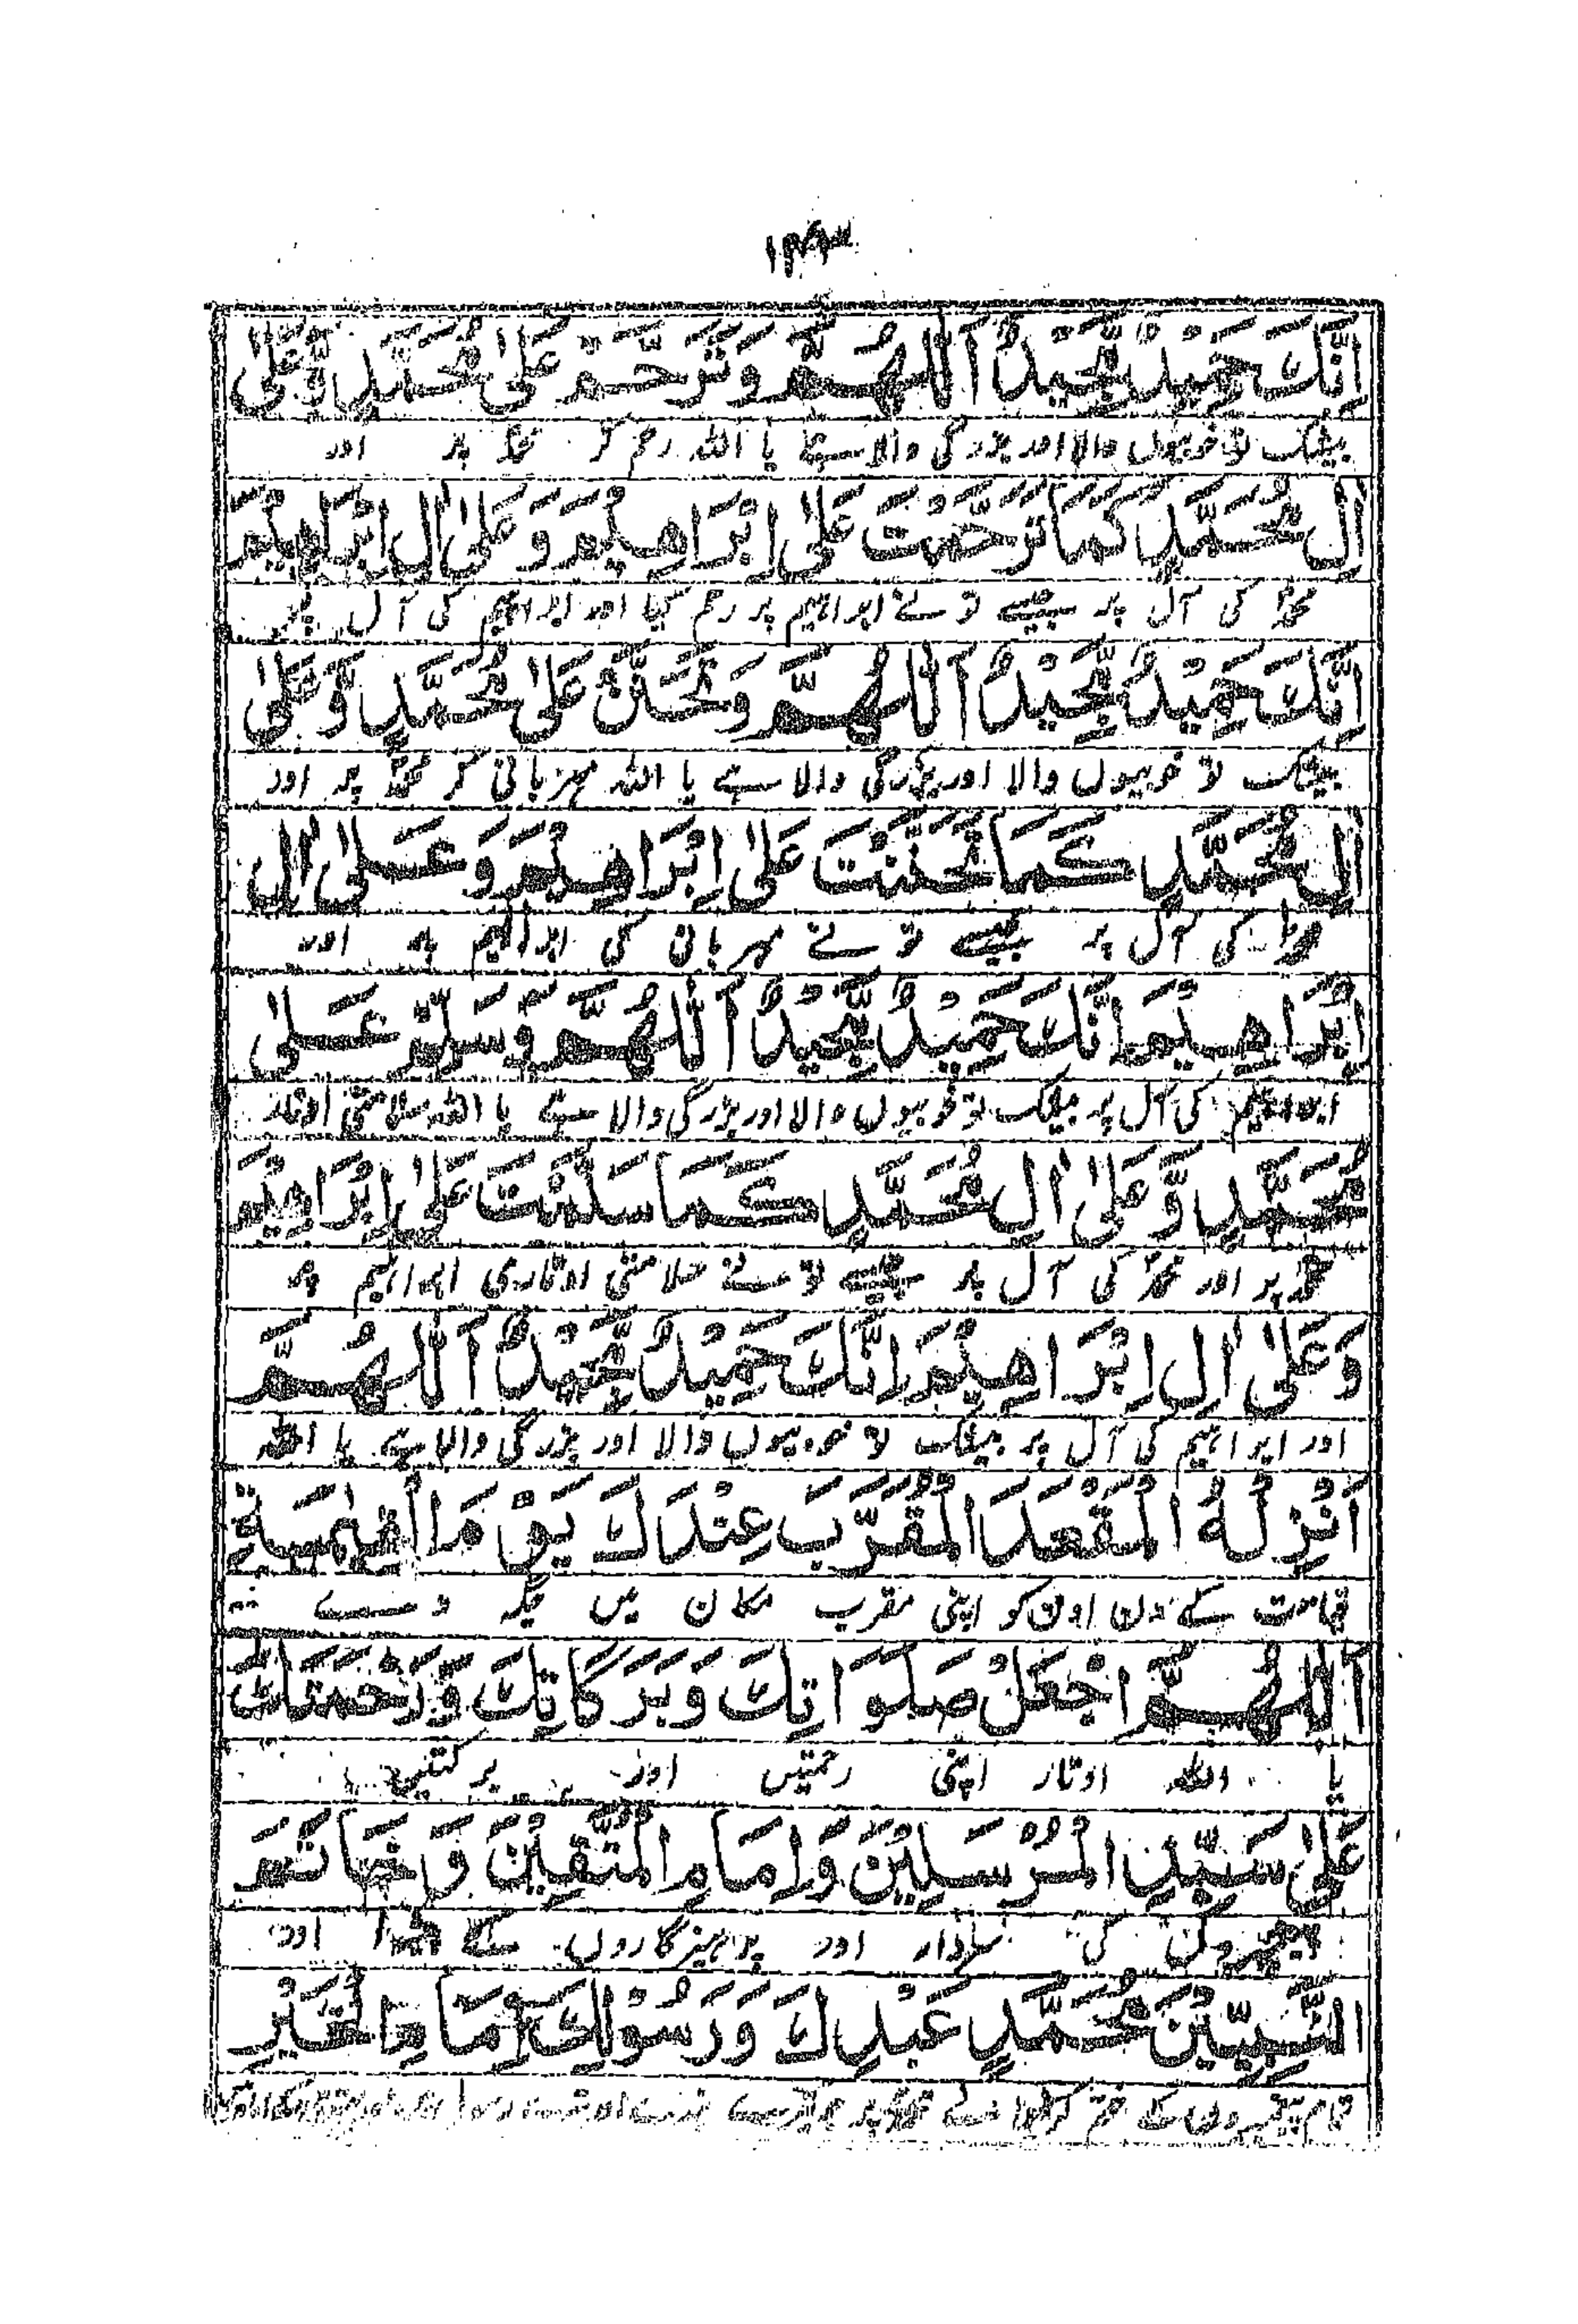 اِنَّكَ حَمِيْدٌ مَّجِيْدٌ اَللّٰهُمَّ وَتَرَحَّمْ عَلٰى مُحَمَّدٍ وَّعَلٰى
بیشک تو خوبیوں والا اور بزرگی والا ہے یا اللہ رحم کر محمدؐ پر اور
اٰلِ مُحَمَّدٍ كَمَا تَرَحَّمْتَ عَلٰى اِبْرَاهِيْمَ وَعَلٰى اٰلِ اِبْرَاهِيْمَ
محمدؐ کی آل پر جیسے تو نے ابراہیم پر رحم کیا اور ابراہیم کی آل پر
اِنَّكَ حَمِيْدٌ مَّجِيْدٌ اَللّٰهُمَّ وَتَحَنَّنْ عَلٰى مُحَمَّدٍ وَّعَلٰى
بیشک تو خوبیوں والا اور بزرگی والا ہے یا اللہ مہربانی کر محمدؐ پر اور
اٰلِ مُحَمَّدٍ كَمَا تَحَنَّنْتَ عَلٰى اِبْرَاهِيْمَ وَعَلٰى اٰلِ
محمدؐ کی آل پر جیسے تو نے مہربانی کی ابراہیم پر اور
اِبْرَاهِيْمَ اِنَّكَ حَمِيْدٌ مَّجِيْدٌ اَللّٰهُمَّ وَسَلِّمْ عَلٰى
ابراہیم کی آل پر بیشک تو خوبیوں والا اور بزرگی والا ہے یا اللہ سلامتی اوتار
مُحَمَّدٍ وَّعَلٰى اٰلِ مُحَمَّدٍ كَمَا سَلَّمْتَ عَلٰى اِبْرَاهِيْمَ
محمدؐ پر اور محمدؐ کی آل پر جیسے تو نے سلامتی اوتاری ابراہیم پر
وَعَلٰى اٰلِ اِبْرَاهِيْمَ اِنَّكَ حَمِيْدٌ مَّجِيْدٌ اَللّٰهُمَّ
اور ابراہیم کی آل پر بیشک تو خوبیوں والا اور بزرگی والا ہے یا اللہ
اَنْزِلْهُ الْمَقْعَدَ الْمُقَرَّبَ عِنْدَكَ يَوْمَ الْقِيٰمَةِ
قیامت کے دن اون کو اپنی مقرب مکان میں جگہ دے
اَللّٰهُمَّ اجْعَلْ صَلَوَاتِكَ وَبَرَكَاتِكَ وَرَحْمَتَكَ
یا اللہ اوتار اپنی رحمتیں اور برکتیں
عَلٰى سَيِّدِ الْمُرْسَلِيْنَ وَاِمَامِ الْمُتَّقِيْنَ وَخَاتَمِ
پیغمبروں کی سردار اور پرہیزگاروں کے اور
النَّبِيِّيْنَ مُحَمَّدٍ عَبْدِكَ وَرَسُوْلِكَ اِمَامِ الْخَيْرِ
تمام پیغمبروں کے ختم محمدؐ پر